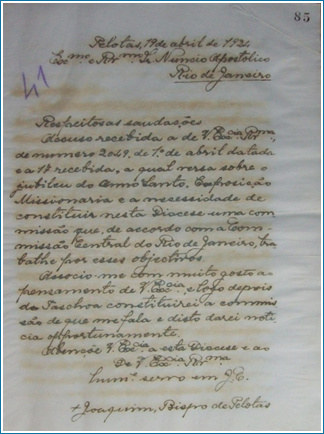 85
Pelotas, 19 de abril de 1924
Exmo e Rvmo Sr. Nuncio Apostolico
Rio de Janeiro
41
Respeitosas saudações
Accuso recebida a de V. Excia Rvma
de numero 2049, de 1º de abril datada
e a 17 recebida, a qual versa sobre o
jubileu do Anno Santo, Exposição
Missionaria e a necessidade de
constituir nesta Diocese uma com-
missão que, de accordo com a Com-
missão Central do Rio de Janeiro, tra
balhe por esses objectivos.
Associo-me com muito gosto ao
pensamento de V. Excia, e logo depois
da Paschoa constituirei a commis
são de que me fala e disto darei noti
cia opportunamente.
Abençoe V. Excia a esta Diocese e ao
De V. Excia Rvma
humº servo em J.C.
+ Joaquim, Bispo de Pelotas